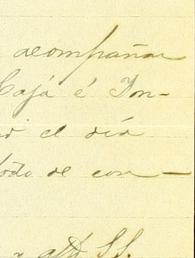 acompañar
Cajá é Ton-
el día
todo de con-
atto SS.